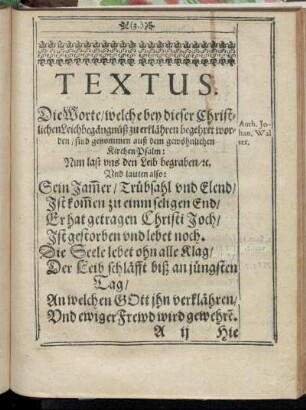 (3.)
TEXTUS.
Die Worte/ welche bey dieser Christ-
lichen Leichbegängnüß zu erklähren begehret wor-
den/ sind genommen auß dem gewöhnlichen
Kirchen Psalm:
Nun last vns den Leib begraben/ ꝛc.
Vnd lauten also:
Sein Jam̃er/ Trübsahl vnd Elend/
Ist kom̃en zu einm selgen End/
Er hat getragen Christi Joch/
Ist gestorben vnd lebet noch.
Die Seele lebet ohn alle Klag/
Der Leib schläfft biß an jüngsten
Tag/
An welchen GOtt jhn verklähren/
Vnd ewiger Frewd wird gewehrẽ.
A ij Hie
Auth. Jo-
han. Wal
ter.